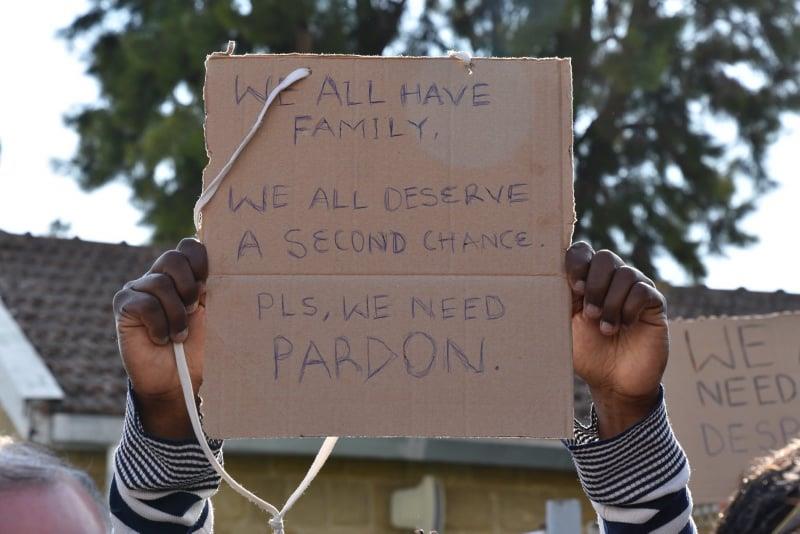 WE ALL HAVE
FAMILY.
WE ALL DESERVE
A SECOND CHANCE.
PLS, WE NEED
PARDON.
WE
NEED